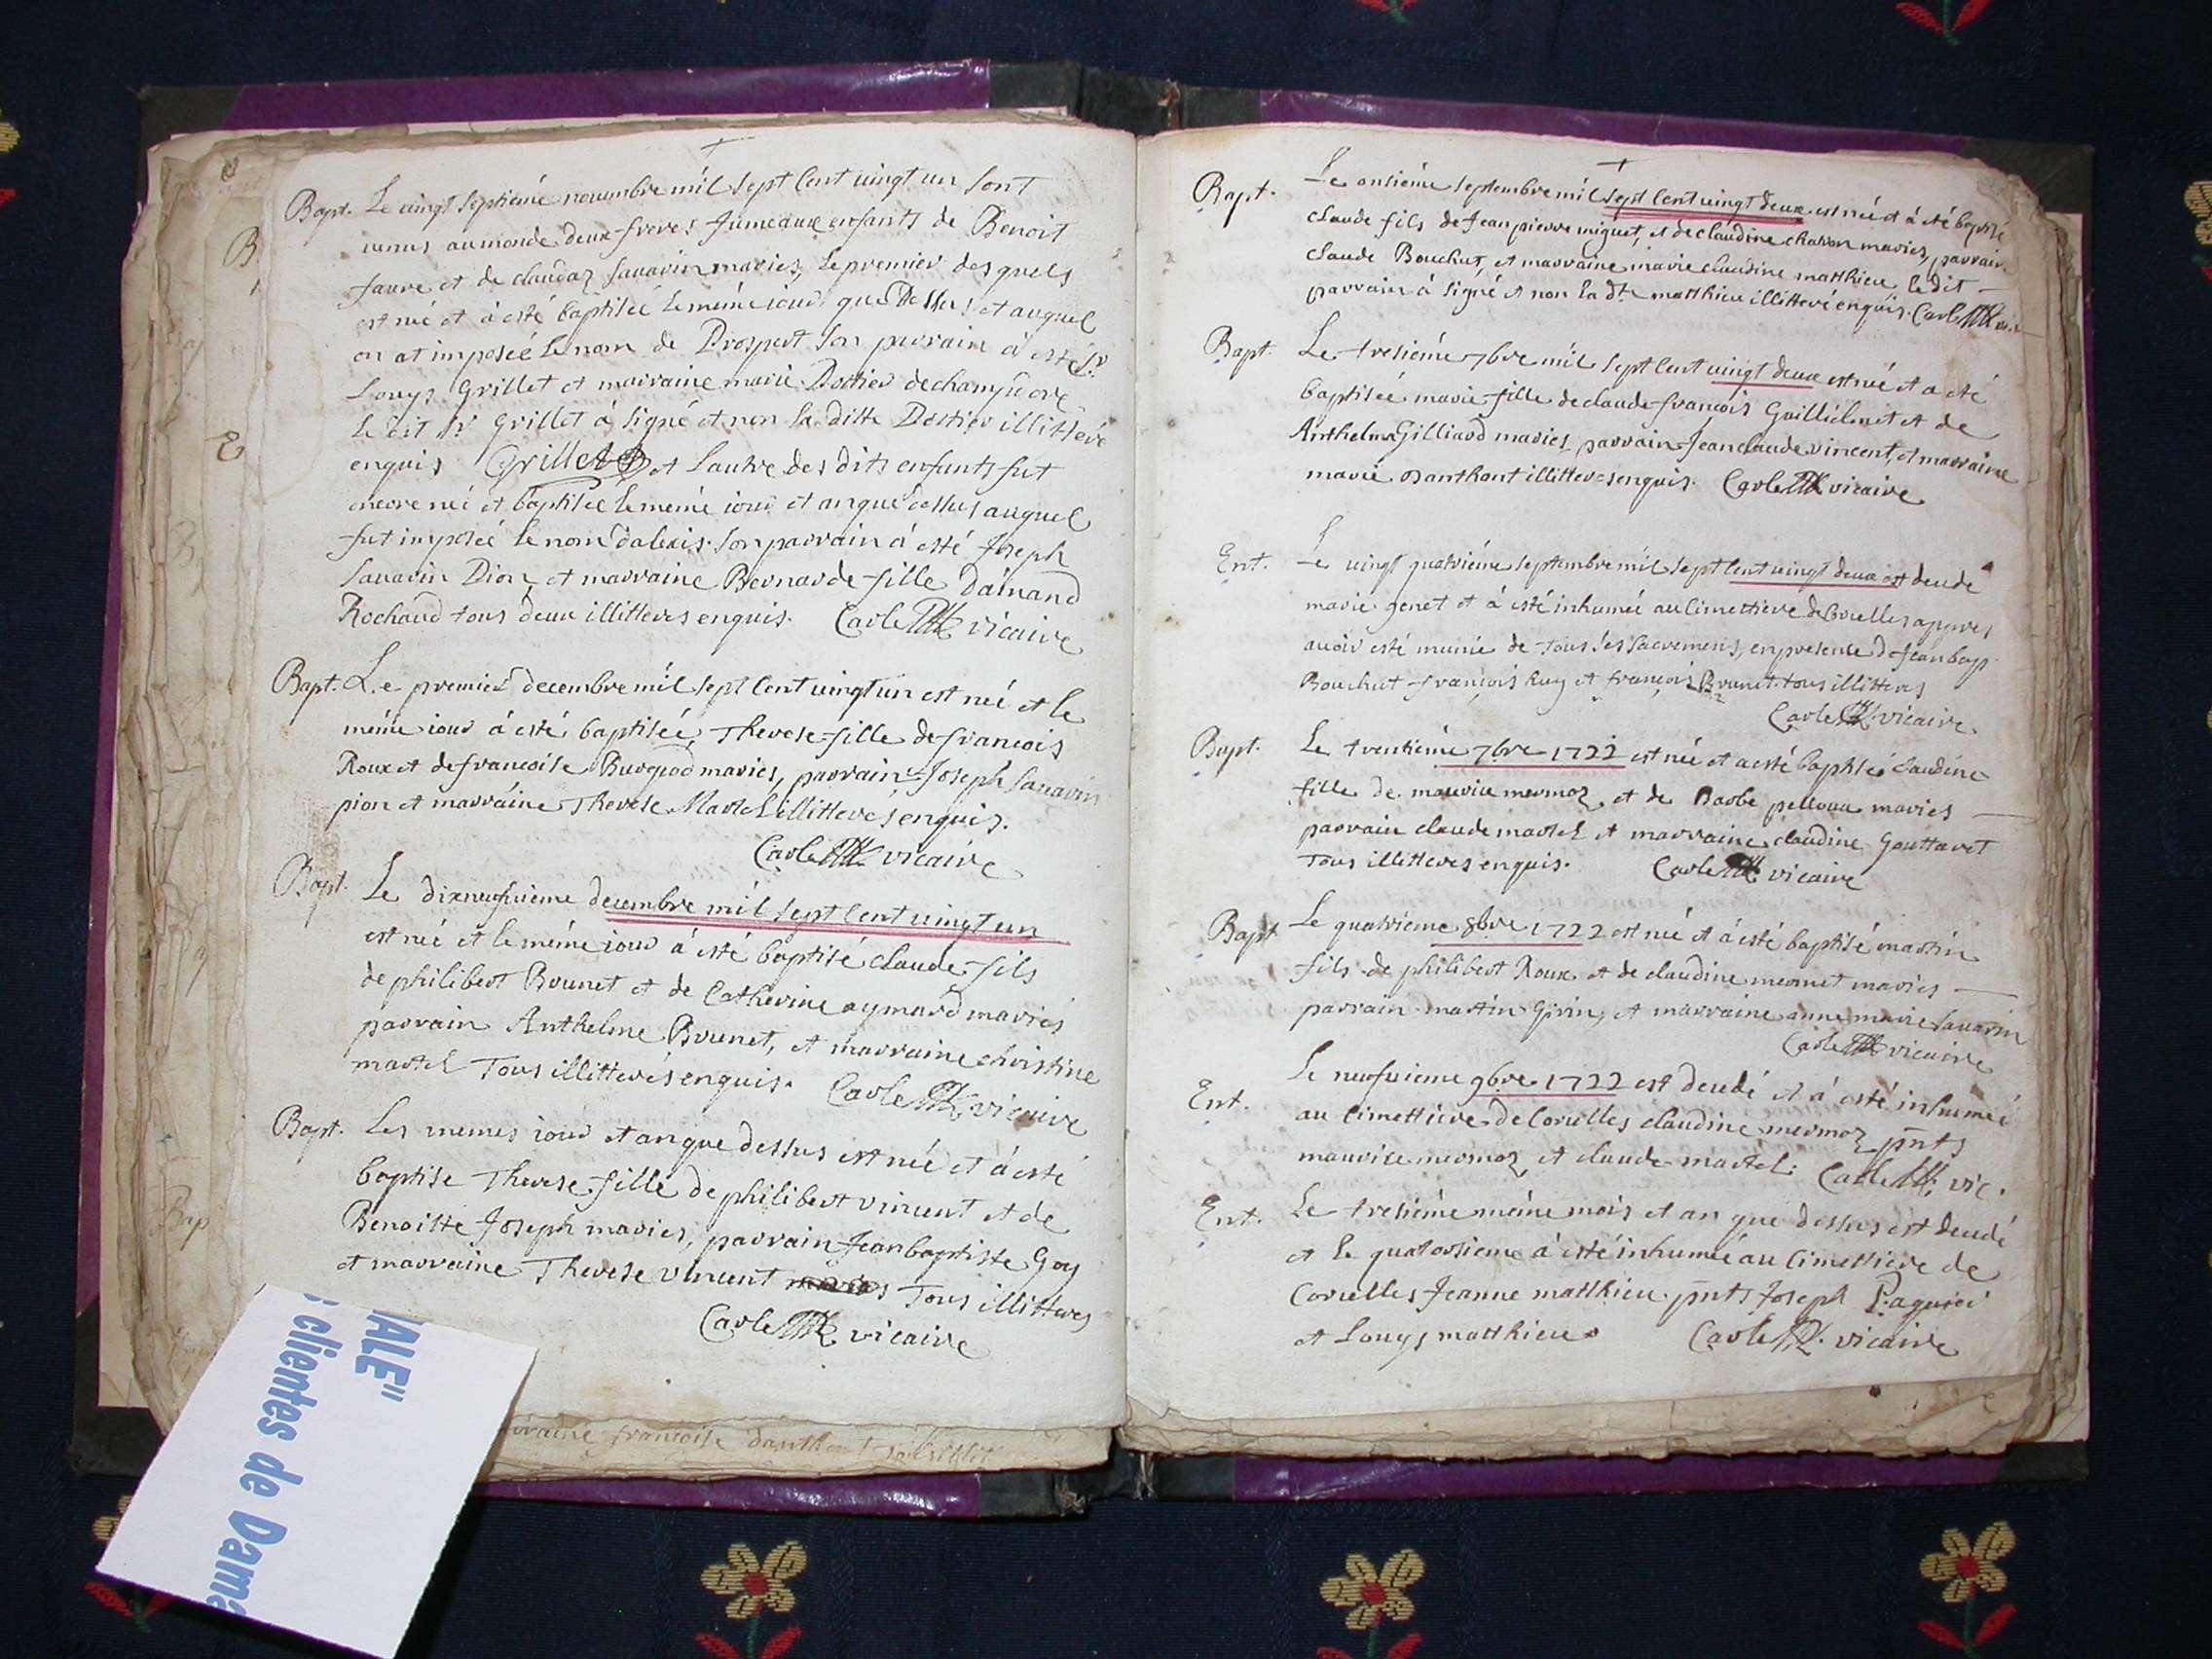 Bapt. Le uingt septiéme nouembre mil sept cent uingt un sont
uenus au monde deux freres jumeaux enfants de Benoit
faure et de claudaz sauarin mariez, le premier des quels
est né et à esté baptisée le méme iour que Dessus et auquel
on at imposeé le nom de Prospert son parrain à esté Sr
Louys Grillet et marraine marie Dottier de champdore
le dit Sr Grillet à signé et non la ditte Dottier illitteré
enquis Grillet et lautre des dits enfants fut
encore né et baptisée le méme iour et an que dessus auquel
fut imposeé le nom dalexis. son parrain à esté Joseph
sauarin Pion, et marraine Bernarde fille Daimand
Rochaud tous deux illitteres enquis. Carle vicaire
Bapt. Le premier decembre mil sept cent uingt un est né et le
méme iour à esté baptiseé, Therese fille de francois
Roux et de francoise Burgiod mariés, parrain Joseph sauarin
pion et marraine Therese Martel illitterés enquis.
Carle vicaire
Bapt. Le dixneufuieme decembre mil sept cent uingt un
est né et le méme iour à esté baptisé claude fils
de philibert Brunet et de Catherine aymard mariés
parrain Anthelme Brunet, et marraine christine
martel Tous illitterés enquis. Carle vicaire
Bapt. Les memes iour et an que dessus est né et à esté
baptise Therese fille de philibert vincent et de
Benoitte Joseph mariés, parrain Jean baptiste Goy
et marraine Therese vincent Tous illitteres
Carle vicaire
raine francoise danthon
Bapt. Le onsiéme septembre mil sept cent uingt deux est né et à été baptisé
claude fils de Jean pierre miguet, et de claudine chatron mariez, parrain
claude Bouchut, et marraine marie claudine matthieu le dit
parrain à signé et non la dte matthieu illitteré enquis. Carle vic.
Bapt. Le tresiéme 7bre mil sept cent uingt deux est né et a eté
baptiseé marie fille de claude francois Guillielmet et de
Anthelma Gilliard mariés, parrain Jean claude vincent, et marraine
marie danthont illitteres enquis. Carle vicaire
Ent. Le uingt quatriéme septembre mil sept cent uingt deux est decedé
marie genet et à esté inhumeé au cimettiere de Coruelles appres
auoir esté munie de tous ses sacremens, en presence de Jean bap.
Bouchut françois Ruy et françois Brunet tous illitteres
Carle vicaire.
Bapt. Le trentiéme 7bre 1722 est né et a esté baptiseé claudine
fille de maurice mermoz, et de Barbe pelloux mariés
parrain claude martel et marraine claudine Gouttaret
Tous illitteres enquis. Carle vicaire
Bapt Le quatrieme 8bre 1722 est né et à esté baptisé martin
fils de philibert Roux et de claudine mermet mariés
parrain martin Girin, et marraine anne marie sauarin
Carle vicaire
Ent. Le neufuieme 9bre 1722 est decedé et à esté inhumeé
au cimettiere de Coruelles claudine mermoz pnts
maurice mermoz, et claude martel. Carle vic.
Ent. Le tresiéme méme mois et an que dessus est decedé
et le quatorsieme à esté inhumeé au cimettiere de
Coruelles Jeanne matthieu. pnts Joseph
et Louys matthieu. Carle vicaire
B
E
Bap
IALE"
clientes de Dama